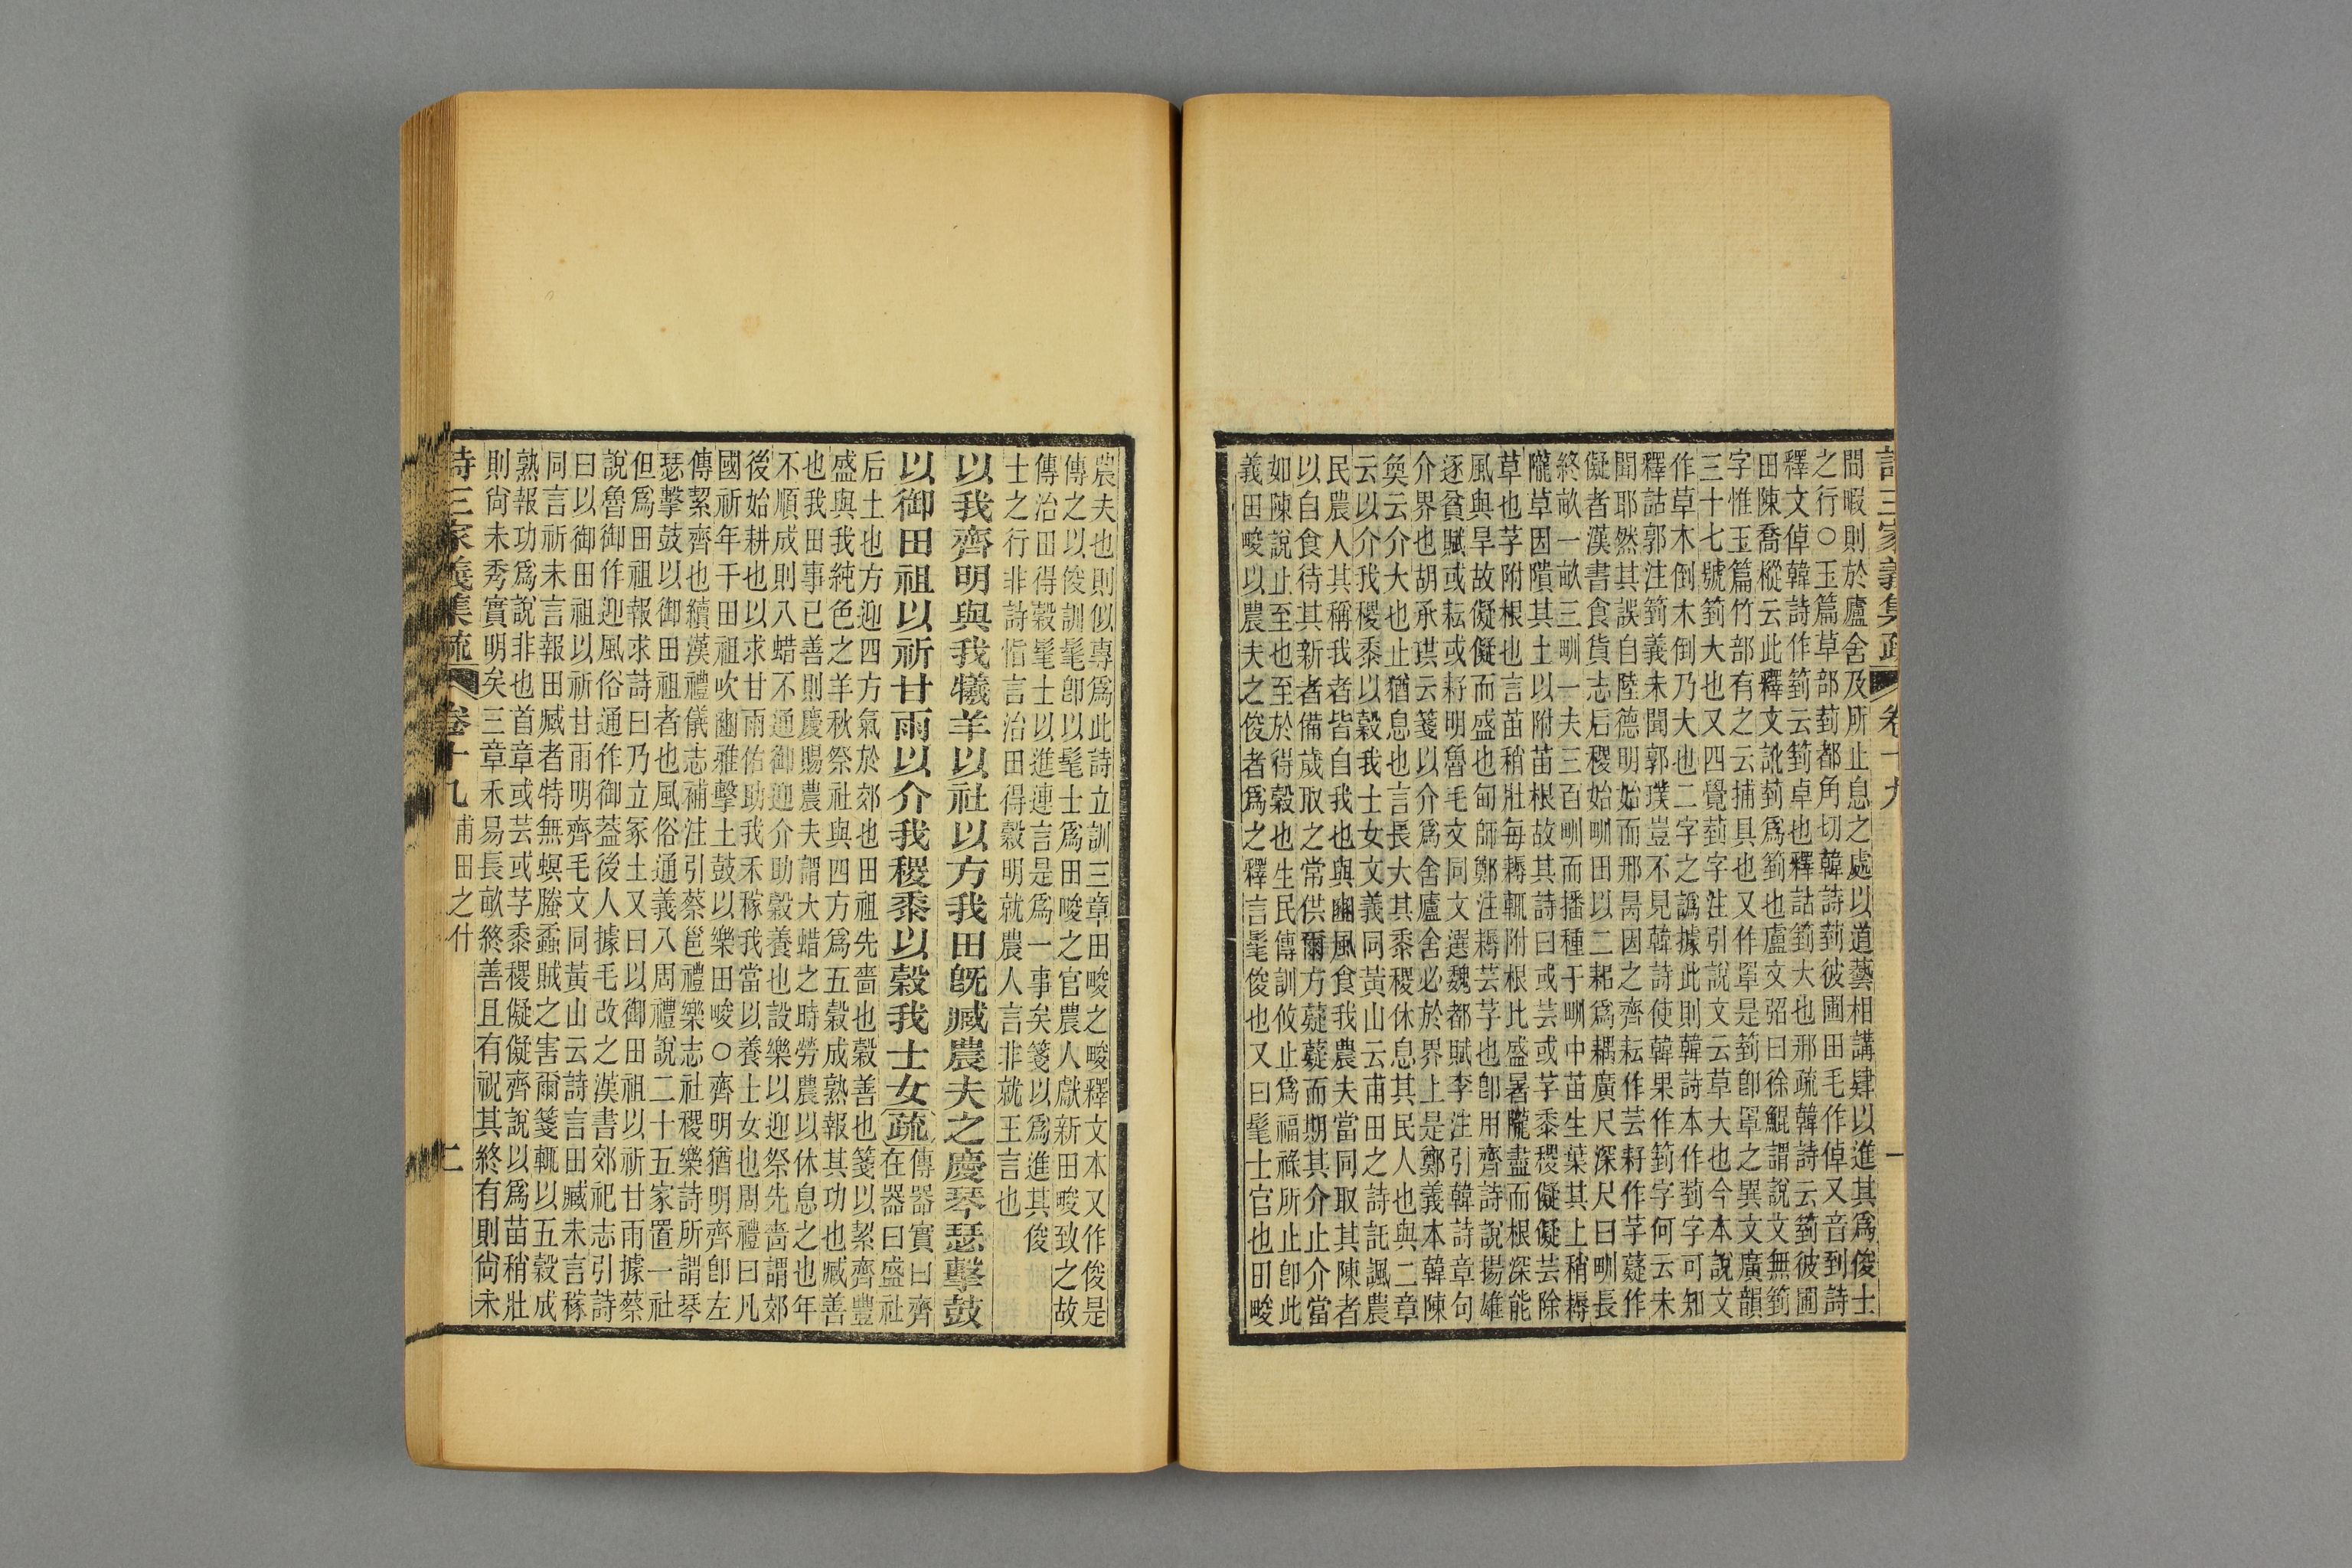 詩三家義集疏 卷十九 一
間暇則於廬舍及所止息之處以道藝相講肄以進其爲俊士
之行○玉篇草部菿都角切韓詩菿彼圃田毛作倬又音到詩
釋文倬韓詩作箌云箌卓也釋詁箌大也邢疏韓詩云箌彼圃
田陳喬樅云此釋文訛菿爲箌也盧文弨曰徐鯤謂說文無箌
字惟玉篇竹部有之云捕具也又作罩是箌卽罩之異文廣韻
三十七號箌大也又四覺菿字注引說文云草大也今本說文
作草木倒木倒乃大也二字之譌據此則韓詩本作菿字可知
釋詁郭注箌義未聞郭璞豈不見韓詩使韓果作箌字何云未
聞耶然其誤自陸德明始而邢昺因之齊耘作芸耔作芓薿作
儗者漢書食貨志后稷始甽田以二耜爲耦廣尺深尺曰甽長
終畝一畝三甽一夫三百甽而播種于甽中苗生葉其上稍耨
隴草因隤其土以附苗根故其詩曰或芸或芓黍稷儗儗芸除
草也芓附根也言苗稍壯每耨輒附根比盛暑隴盡而根深能
風與旱故儗儗而盛也甸師鄭注耨芸芓也卽用齊詩說揚雄
逐貧賦或耘或耔明魯毛文同文選魏都賦李注引韓詩章句
介界也胡承珙云箋以介爲舍廬舍必於界上是鄭義本韓陳
奐云介大也止猶息也言長大其黍稷休息其民人也與二章
云以介我稷黍以穀我士女文義同黃山云甫田之詩託諷農
民農人其稱我者皆自我也與豳風食我農夫當同取其陳者
以自食待其新者備歲取之常供爾方薿薿而期其介止介當
如陳說止至也至於得穀也生民傳訓攸止爲福祿所止卽此
義田畯以農夫之俊者爲之釋言髦俊也又曰髦士官也田畯
農夫也則似專爲此詩立訓三章田畯之畯釋文本又作俊是
傳之以俊訓髦卽以髦士爲田畯之官農人獻新田畯致之故
傳治田得穀髦士以進連言是爲一事矣箋以爲進其俊
士之行非詩恉言治田得穀明就農人言非就王言也
以我齊明與我犧羊以社以方我田旣臧農夫之慶琴瑟擊鼓
以御田祖以祈甘雨以介我稷黍以穀我士女疏傳器實曰齊
在器曰盛社
后土也方迎四方氣於郊也田祖先嗇也穀善也箋以絜齊豐
盛與我純色之羊秋祭社與四方爲五穀成熟報其功也臧善
也我田事已善則慶賜農夫謂大蜡之時勞農以休息之也年
不順成則八蜡不通御迎介助穀養也設樂以迎祭先嗇謂郊
後始耕也以求甘雨佑助我禾稼我當以養士女也周禮曰凡
國祈年于田祖吹豳雅擊土鼓以樂田畯○齊明猶明齊卽左
傳絜齊也續漢禮儀志補注引蔡邕禮樂志社稷樂詩所謂琴
瑟擊鼓以御田祖者也風俗通義八周禮說二十五家置一社
但爲田祖報求詩曰乃立冢土又曰以御田祖以祈甘雨據蔡
說魯御作迎風俗通作御葢後人據毛改之漢書郊祀志引詩
曰以御田祖以祈甘雨明齊毛文同黃山云詩言田臧未言稼
同言祈未言報田臧者特無螟螣蟊賊之害爾箋輒以五穀成
熟報功爲說非也首章或芸或芓黍稷儗儗齊說以爲苗稍壯
則尙未秀實明矣三章禾易長畝終善且有祝其終有則尙未
詩三家義集疏 卷十九 甫田之什 二